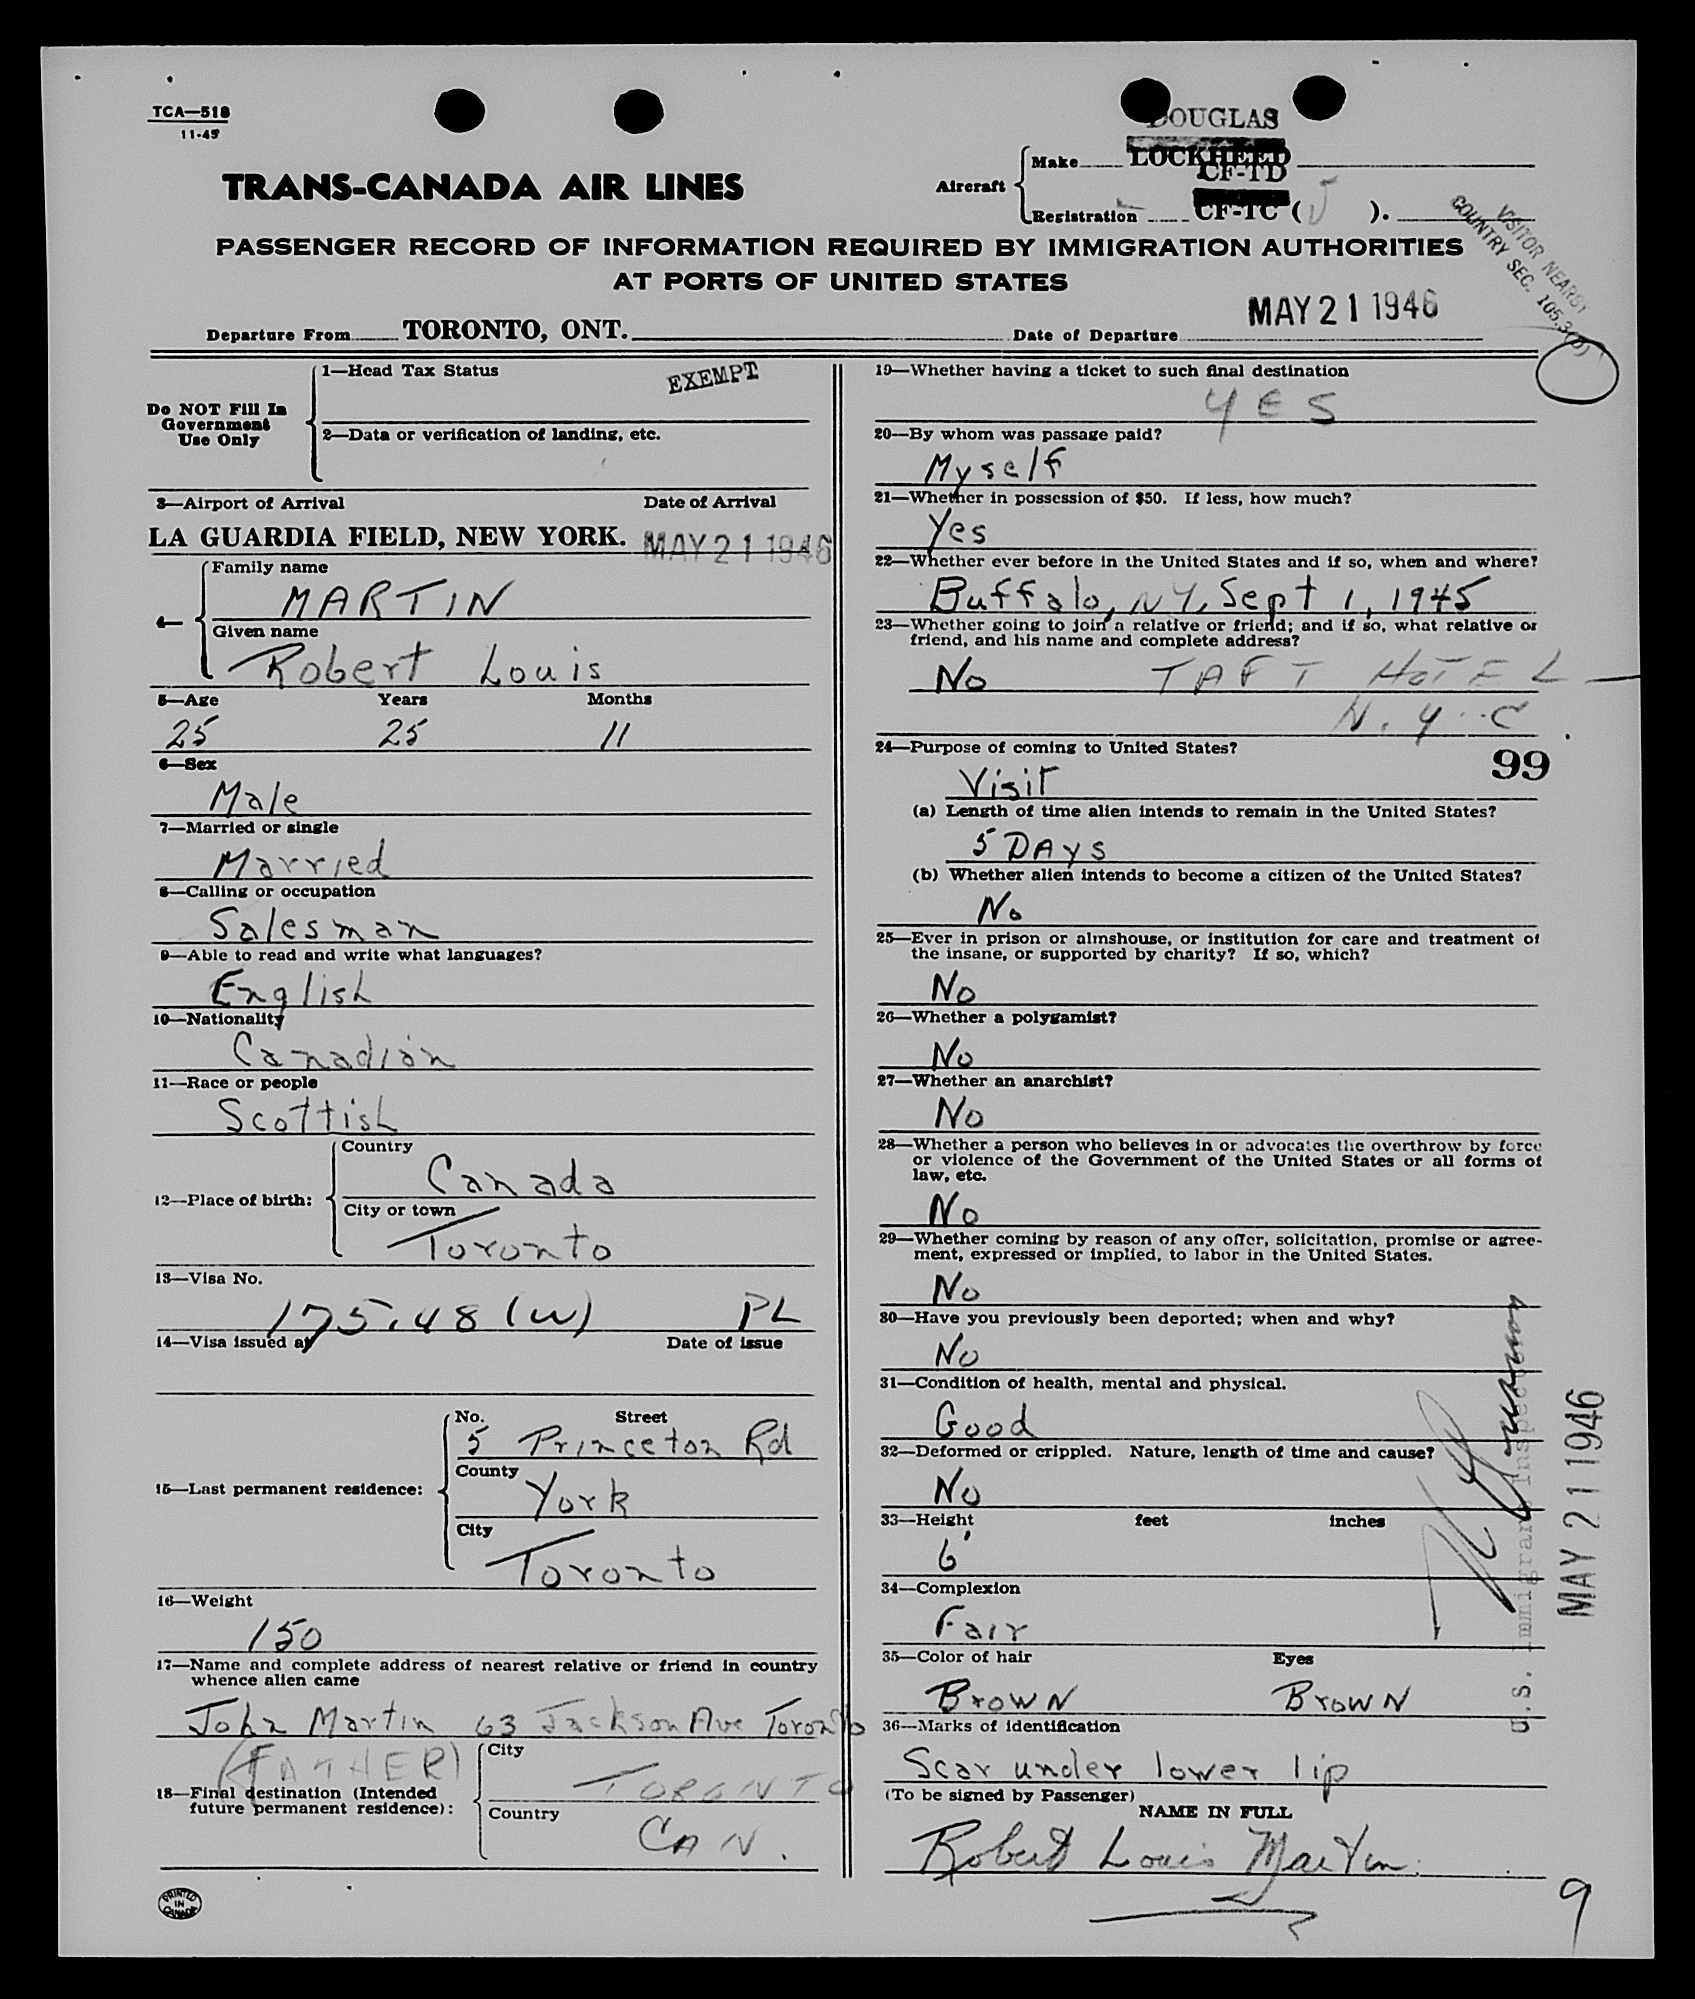 TCA—518
11-45
DOUGLAS
Aircraft
Make LOCKHEED
CF-TD
Registration CF-TC ( J ).
TRANS-CANADA AIR LINES
VISITOR NEARBY
COUNTRY SEC. 105.3
PASSENGER RECORD OF INFORMATION REQUIRED BY IMMIGRATION AUTHORITIES
AT PORTS OF UNITED STATES
Departure From TORONTO, ONT. Date of Departure MAY 21 1946
Do NOT Fill In
Government
Use Only
1—Head Tax Status EXEMPT
2—Data or verification of landing, etc.
3—Airport of Arrival Date of Arrival
LA GUARDIA FIELD, NEW YORK. MAY 21 1946
4—
Family name
MARTIN
Given name
Robert Louis
5—Age Years Months
25 25 11
6—Sex
Male
7—Married or single
Married
8—Calling or occupation
Salesman
9—Able to read and write what languages?
English
10—Nationality
Canadian
11—Race or people
Scottish
12—Place of birth:
Country
Canada
City or town
Toronto
13—Visa No.
175.48 (W) PL
14—Visa issued at Date of issue
15—Last permanent residence:
No. Street
5 Princeton Rd
County
York
City
Toronto
16—Weight
150
17—Name and complete address of nearest relative or friend in country
whence alien came
John Martin 63 Jackson Ave Toronto
(FATHER)
18—Final destination (Intended
future permanent residence):
City
TORONTO
Country
CAN.
PRINTED
IN
CANADA
19—Whether having a ticket to such final destination
YES
20—By whom was passage paid?
Myself
21—Whether in possession of $50. If less, how much?
Yes
22—Whether ever before in the United States and if so, when and where?
Buffalo, NY, Sept 1, 1945
23—Whether going to join a relative or friend; and if so, what relative or
friend, and his name and complete address?
No TAFT HOTEL —
N.Y.C.
24—Purpose of coming to United States?
99
Visit
(a) Length of time alien intends to remain in the United States?
5 DAys
(b) Whether alien intends to become a citizen of the United States?
No
25—Ever in prison or almshouse, or institution for care and treatment of
the insane, or supported by charity? If so, which?
No
26—Whether a polygamist?
No
27—Whether an anarchist?
No
28—Whether a person who believes in or advocates the overthrow by force
or violence of the Government of the United States or all forms of
law, etc.
No
29—Whether coming by reason of any offer, solicitation, promise or agree-
ment, expressed or implied, to labor in the United States.
No
30—Have you previously been deported; when and why?
No
31—Condition of health, mental and physical.
Good
32—Deformed or crippled. Nature, length of time and cause?
No
33—Height feet inches
6'
34—Complexion
Fair
35—Color of hair Eyes
Brown Brown
36—Marks of identification
Scar under lower lip
(To be signed by Passenger)
NAME IN FULL
Robert Louis Martin
U.S. Immigrant Inspector
MAY 21 1946
9